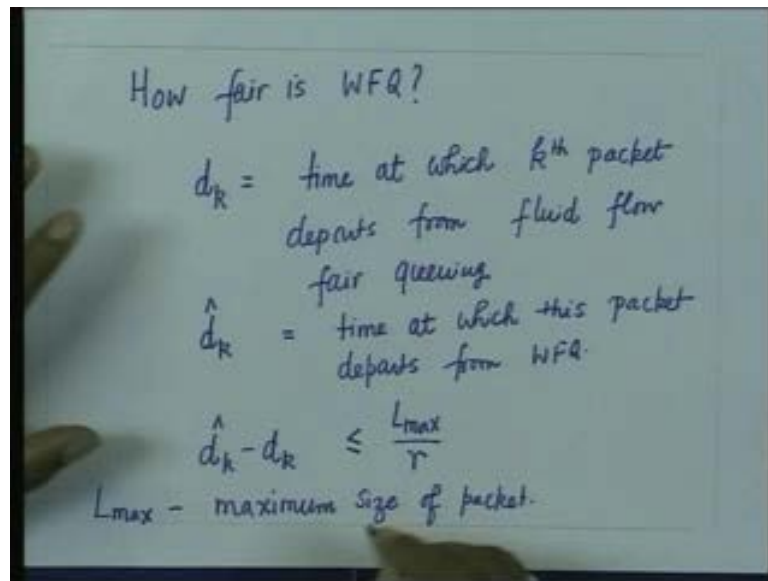 How fair is WFQ?
dₖ = time at which kᵗʰ packet
departs from fluid flow
fair queuing
d̂ₖ = time at which this packet
departs from WFQ.
d̂ₖ - dₖ ≤ Lmax/r
Lmax - maximum size of packet.